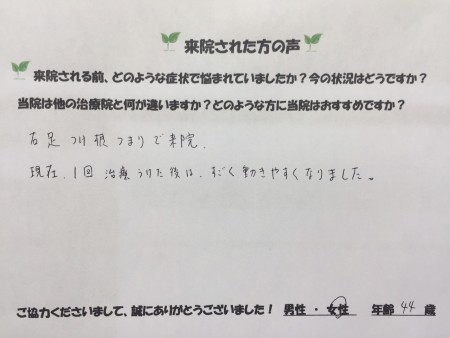 来院された方の声
来院される前、どのような症状で悩まれていましたか？今の状況はどうですか？
当院は他の治療院と何が違いますか？どのような方に当院はおすすめですか？
右足 つけ根 つまりで来院.
現在、1回 治療 うけた後は、すごく動きやすくなりました。
ご協力くださいまして、誠にありがとうございました！ 男性 ・ 女性 年齢 44 歳